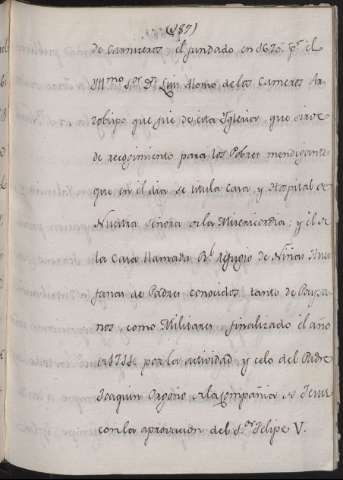 (187)
de Carniceros el fundado en 1670. pr. el
Yllmo. Sor. Dn. Luis Alonso de los Cameros Ar
zobispo que fue de esta Yglesia, que sirve
de recogimiento para los Pobres mendigantes
que en el dia se titula Casa, y Hospital de
Nuestra Señora de la Misericordia; y el de
la Casa llamada Rl. refugio de Niñas Huer
fanas de Padres conocidos tanto de Paysa
nos, como Militares, finalizado el año
por la actividad, y celo del Padre
Joaquin de la Compañia de Jesus
con la aprovacion del Sor. Felipe V.